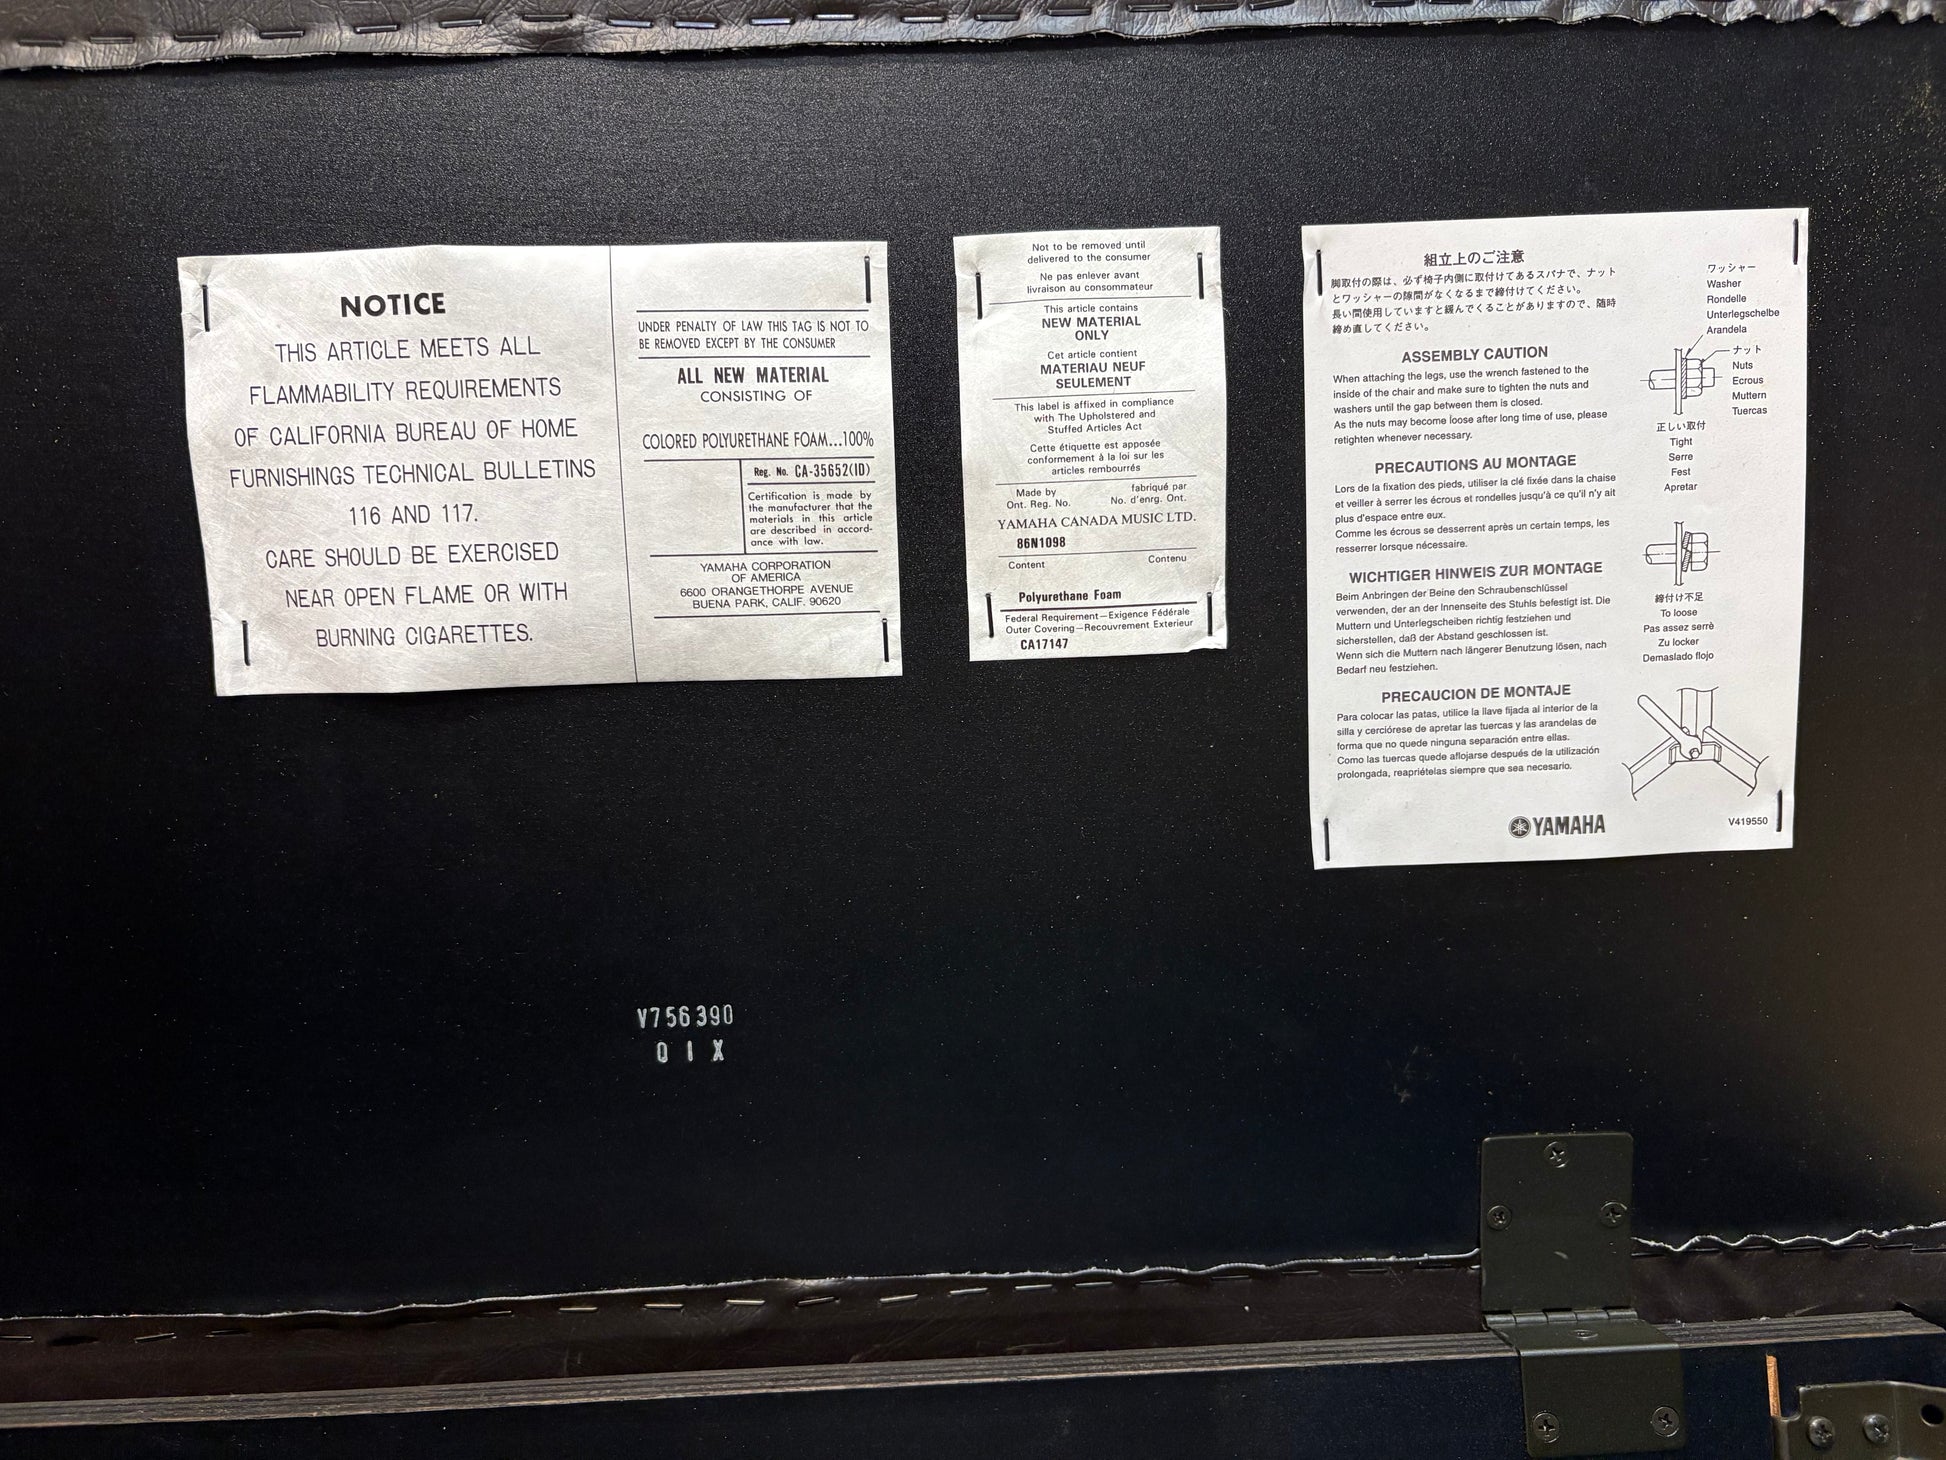 NOTICE
THIS ARTICLE MEETS ALL
FLAMMABILITY REQUIREMENTS
OF CALIFORNIA BUREAU OF HOME
FURNISHINGS TECHNICAL BULLETINS
116 AND 117.
CARE SHOULD BE EXERCISED
NEAR OPEN FLAME OR WITH
BURNING CIGARETTES.
UNDER PENALTY OF LAW THIS TAG IS NOT TO
BE REMOVED EXCEPT BY THE CONSUMER
ALL NEW MATERIAL
CONSISTING OF
COLORED POLYURETHANE FOAM...100%
Reg. No. CA-35652(ID)
Certification is made by
the manufacturer that the
materials in this article
are described in accord-
ance with law.
YAMAHA CORPORATION
OF AMERICA
6600 ORANGETHORPE AVENUE
BUENA PARK, CALIF. 90620
Not to be removed until
delivered to the consumer
Ne pas enlever avant
livraison au consommateur
This article contains
NEW MATERIAL
ONLY
Cet article contient
MATERIAU NEUF
SEULEMENT
This label is affixed in compliance
with The Upholstered and
Stuffed Articles Act
Cette étiquette est apposée
conformement à la loi sur les
articles rembourrés
Made by fabriqué par
Ont. Reg. No. No. d'enrg. Ont.
YAMAHA CANADA MUSIC LTD.
86N1098
Content Contenu
Polyurethane Foam
Federal Requirement—Exigence Fédérale
Outer Covering—Recouvrement Exterieur
CA17147
組立上のご注意
脚取付の際は、必ず椅子内側に取付けてあるスパナで、ナット
とワッシャーの隙間がなくなるまで締付けてください。
長い間使用していますと緩んでくることがありますので、随時
締め直してください。
ASSEMBLY CAUTION
When attaching the legs, use the wrench fastened to the
inside of the chair and make sure to tighten the nuts and
washers until the gap between them is closed.
As the nuts may become loose after long time of use, please
retighten whenever necessary.
PRECAUTIONS AU MONTAGE
Lors de la fixation des pieds, utiliser la clé fixée dans la chaise
et veiller à serrer les écrous et rondelles jusqu'à ce qu'il n'y ait
plus d'espace entre eux.
Comme les écrous se desserrent après un certain temps, les
resserrer lorsque nécessaire.
WICHTIGER HINWEIS ZUR MONTAGE
Beim Anbringen der Beine den Schraubenschlüssel
verwenden, der an der Innenseite des Stuhls befestigt ist. Die
Muttern und Unterlegscheiben richtig festziehen und
sicherstellen, daß der Abstand geschlossen ist.
Wenn sich die Muttern nach längerer Benutzung lösen, nach
Bedarf neu festziehen.
PRECAUCION DE MONTAJE
Para colocar las patas, utilice la llave fijada al interior de la
silla y cerciórese de apretar las tuercas y las arandelas de
forma que no quede ninguna separación entre ellas.
Como las tuercas quede aflojarse después de la utilización
prolongada, reapriételas siempre que sea necesario.
ワッシャー
Washer
Rondelle
Unterlegschelbe
Arandela
ナット
Nuts
Ecrous
Muttern
Tuercas
正しい取付
Tight
Serre
Fest
Apretar
締付け不足
To loose
Pas assez serrè
Zu locker
Demaslado flojo
YAMAHA
V419550
V756390
OIX